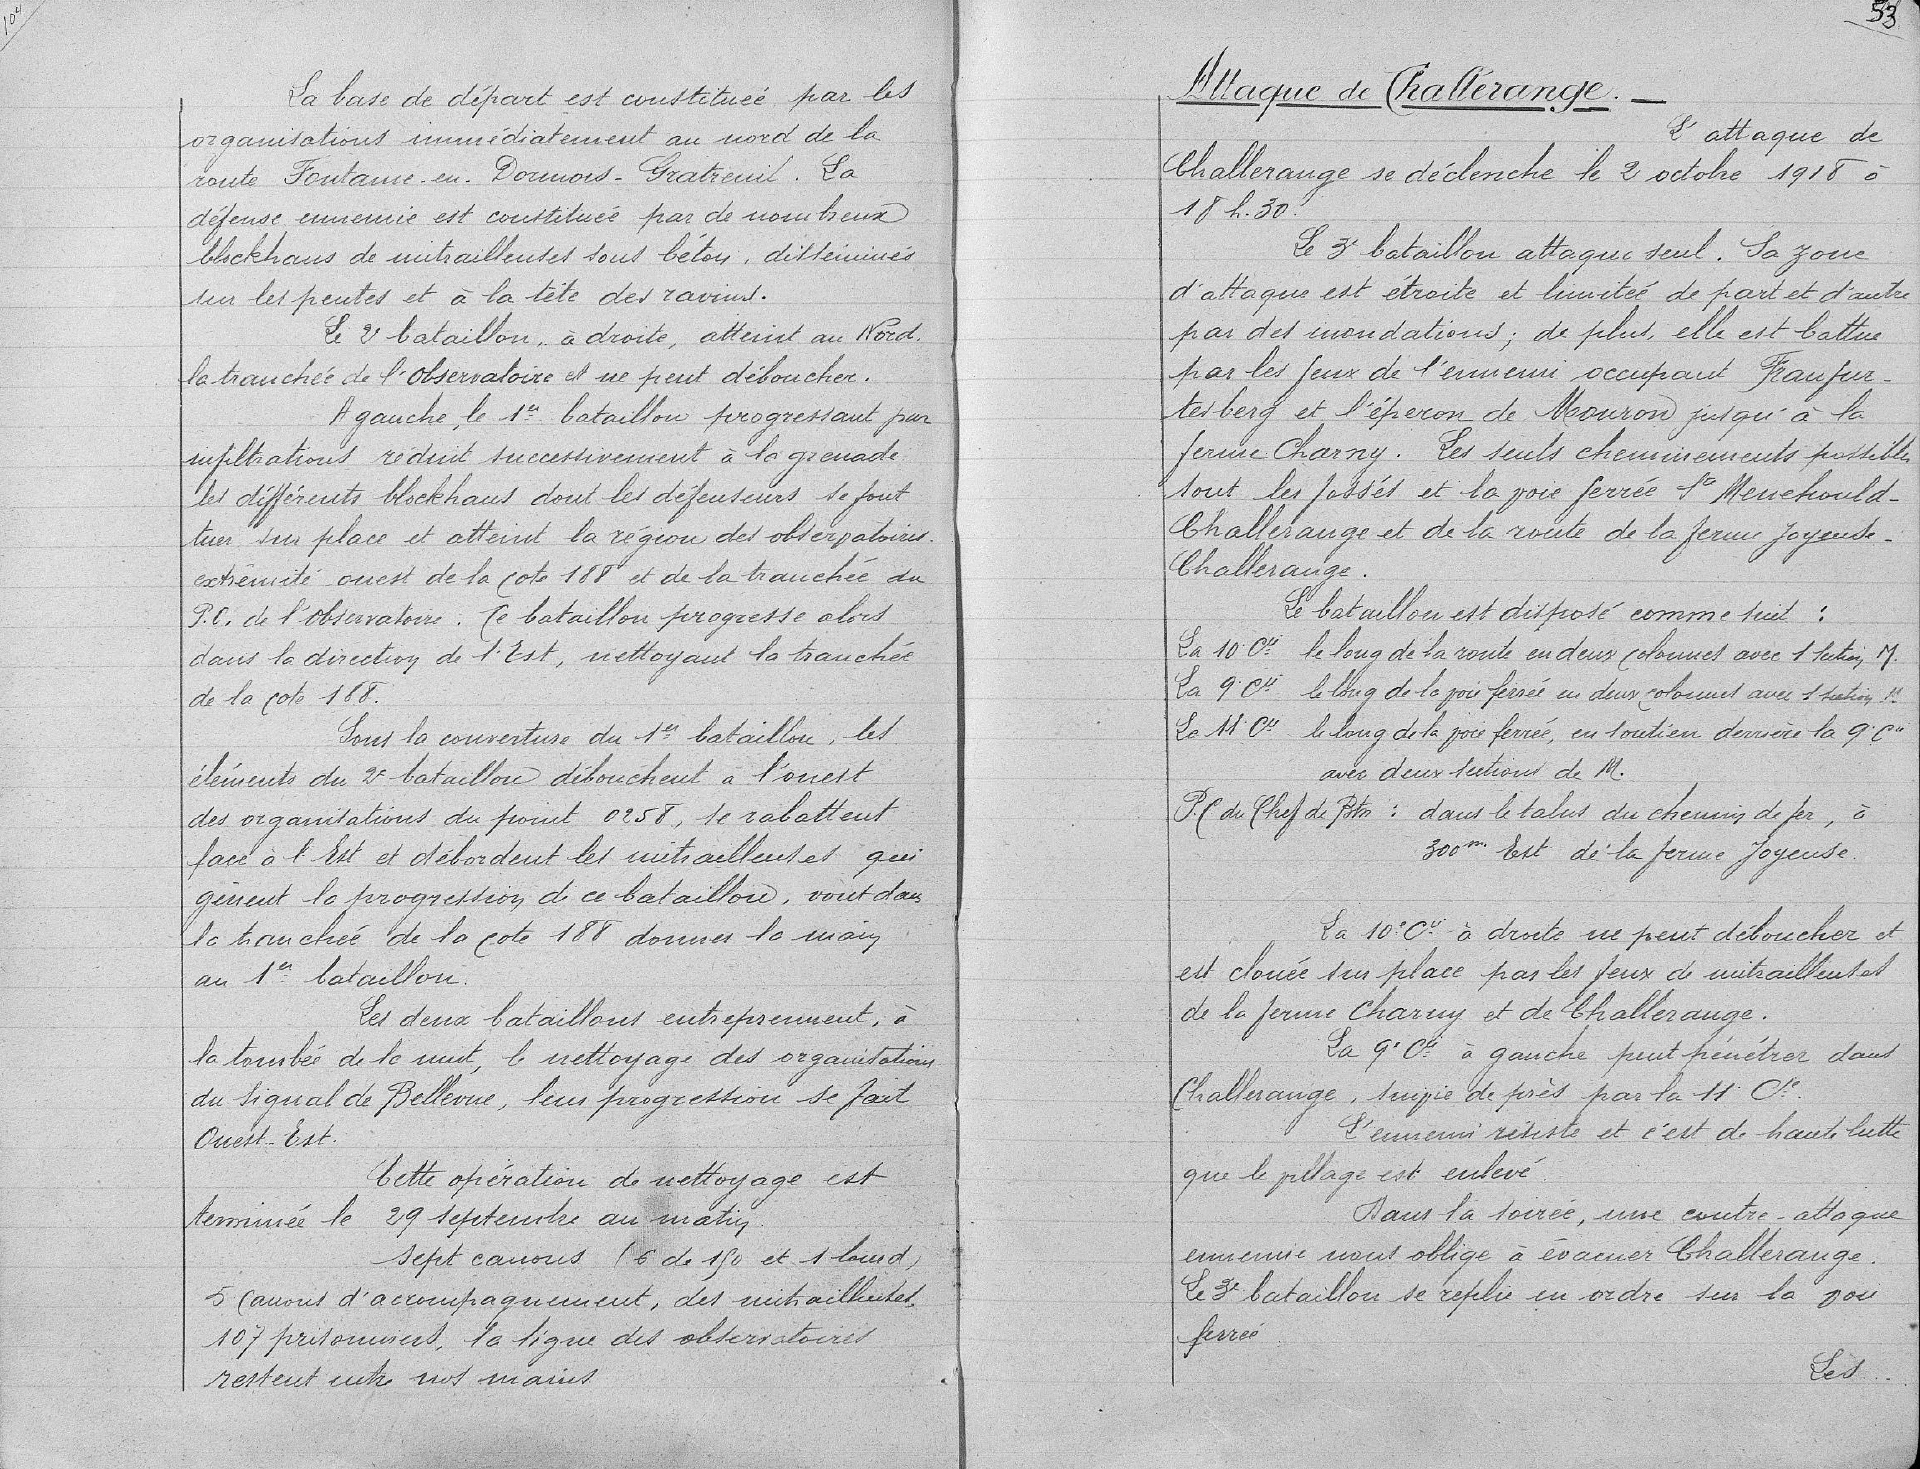 104
La base de départ est constituée par les
organisations immédiatement au nord de la
route Fontaine-en-Dormois-Gratreuil. La
défense ennemie est constituée par de nombreux
blockhaus de mitrailleuses sous béton, disséminés
sur les pentes et à la tête des ravins.
Le 2e bataillon, à droite, atteint au Nord
la tranchée de l'Observatoire et ne peut déboucher.
A gauche, le 1er bataillon progressant par
infiltrations réduit successivement à la grenade
les différents blockhaus dont les défenseurs se font
tuer sur place et atteint la région des observatoires
extrémité ouest de la cote 188 et de la tranchée du
P.C. de l'Observatoire. Ce bataillon progresse alors
dans la direction de l'Est, nettoyant la tranchée
de la cote 188.
Sous la couverture du 1er bataillon, les
éléments du 2e bataillon débouchent à l'ouest
des organisations du point 0258, se rabattent
face à l'Est et débordent les mitrailleuses qui
gênent la progression de ce bataillon, vont dans
la tranchée de la cote 188 donner la main
au 1er bataillon.
Les deux bataillons entreprennent, à
la tombée de la nuit, le nettoyage des organisations
du signal de Bellevue, leur progression se fait
Ouest-Est.
Cette opération de nettoyage est
terminée le 29 septembre au matin.
Sept canons (6 de 150 et 1 lourd)
5 canons d'accompagnement, des mitrailleuses,
107 prisonniers, la ligne des observatoires
restent entre nos mains
53
Attaque de Challerange. —
L'attaque de
Challerange se déclenche le 2 octobre 1918 à
18 h. 30.
Le 3e bataillon attaque seul. Sa zone
d'attaque est étroite et limitée de part et d'autre
par des inondations; de plus, elle est battue
par les feux de l'ennemi occupant Franfur-
tesberg et l'éperon de Mouron jusqu'à la
ferme Charny. Les seuls cheminements possibles
sont les fossés et la voie ferrée Ste Menehould-
Challerange et de la route de la ferme Joyeuse-
Challerange.
Le bataillon est disposé comme suit :
La 10e Cie le long de la route en deux colonnes avec 1 section M.
La 9e Cie le long de la voie ferrée en deux colonnes avec 1 section M
La 11e Cie le long de la voie ferrée, en soutien derrière la 9e Cie
avec deux sections de M.
P.C du Chef de Btn : dans le talus du chemin de fer, à
300m Est de la ferme Joyeuse.
La 10e Cie à droite ne peut déboucher et
est clouée sur place par les feux de mitrailleuses
de la ferme Charny et de Challerange.
La 9e Cie à gauche peut pénétrer dans
Challerange, suivie de près par la 11e Cie.
L'ennemi résiste et c'est de haute lutte
que le village est enlevé
Dans la soirée, une contre-attaque
ennemie nous oblige à évacuer Challerange.
Le 3e bataillon se replie en ordre sur la voie
ferrée
Les...